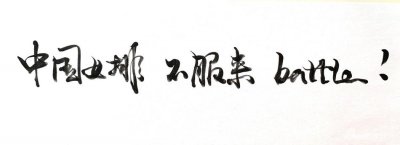 中国女排 不服来 battle!